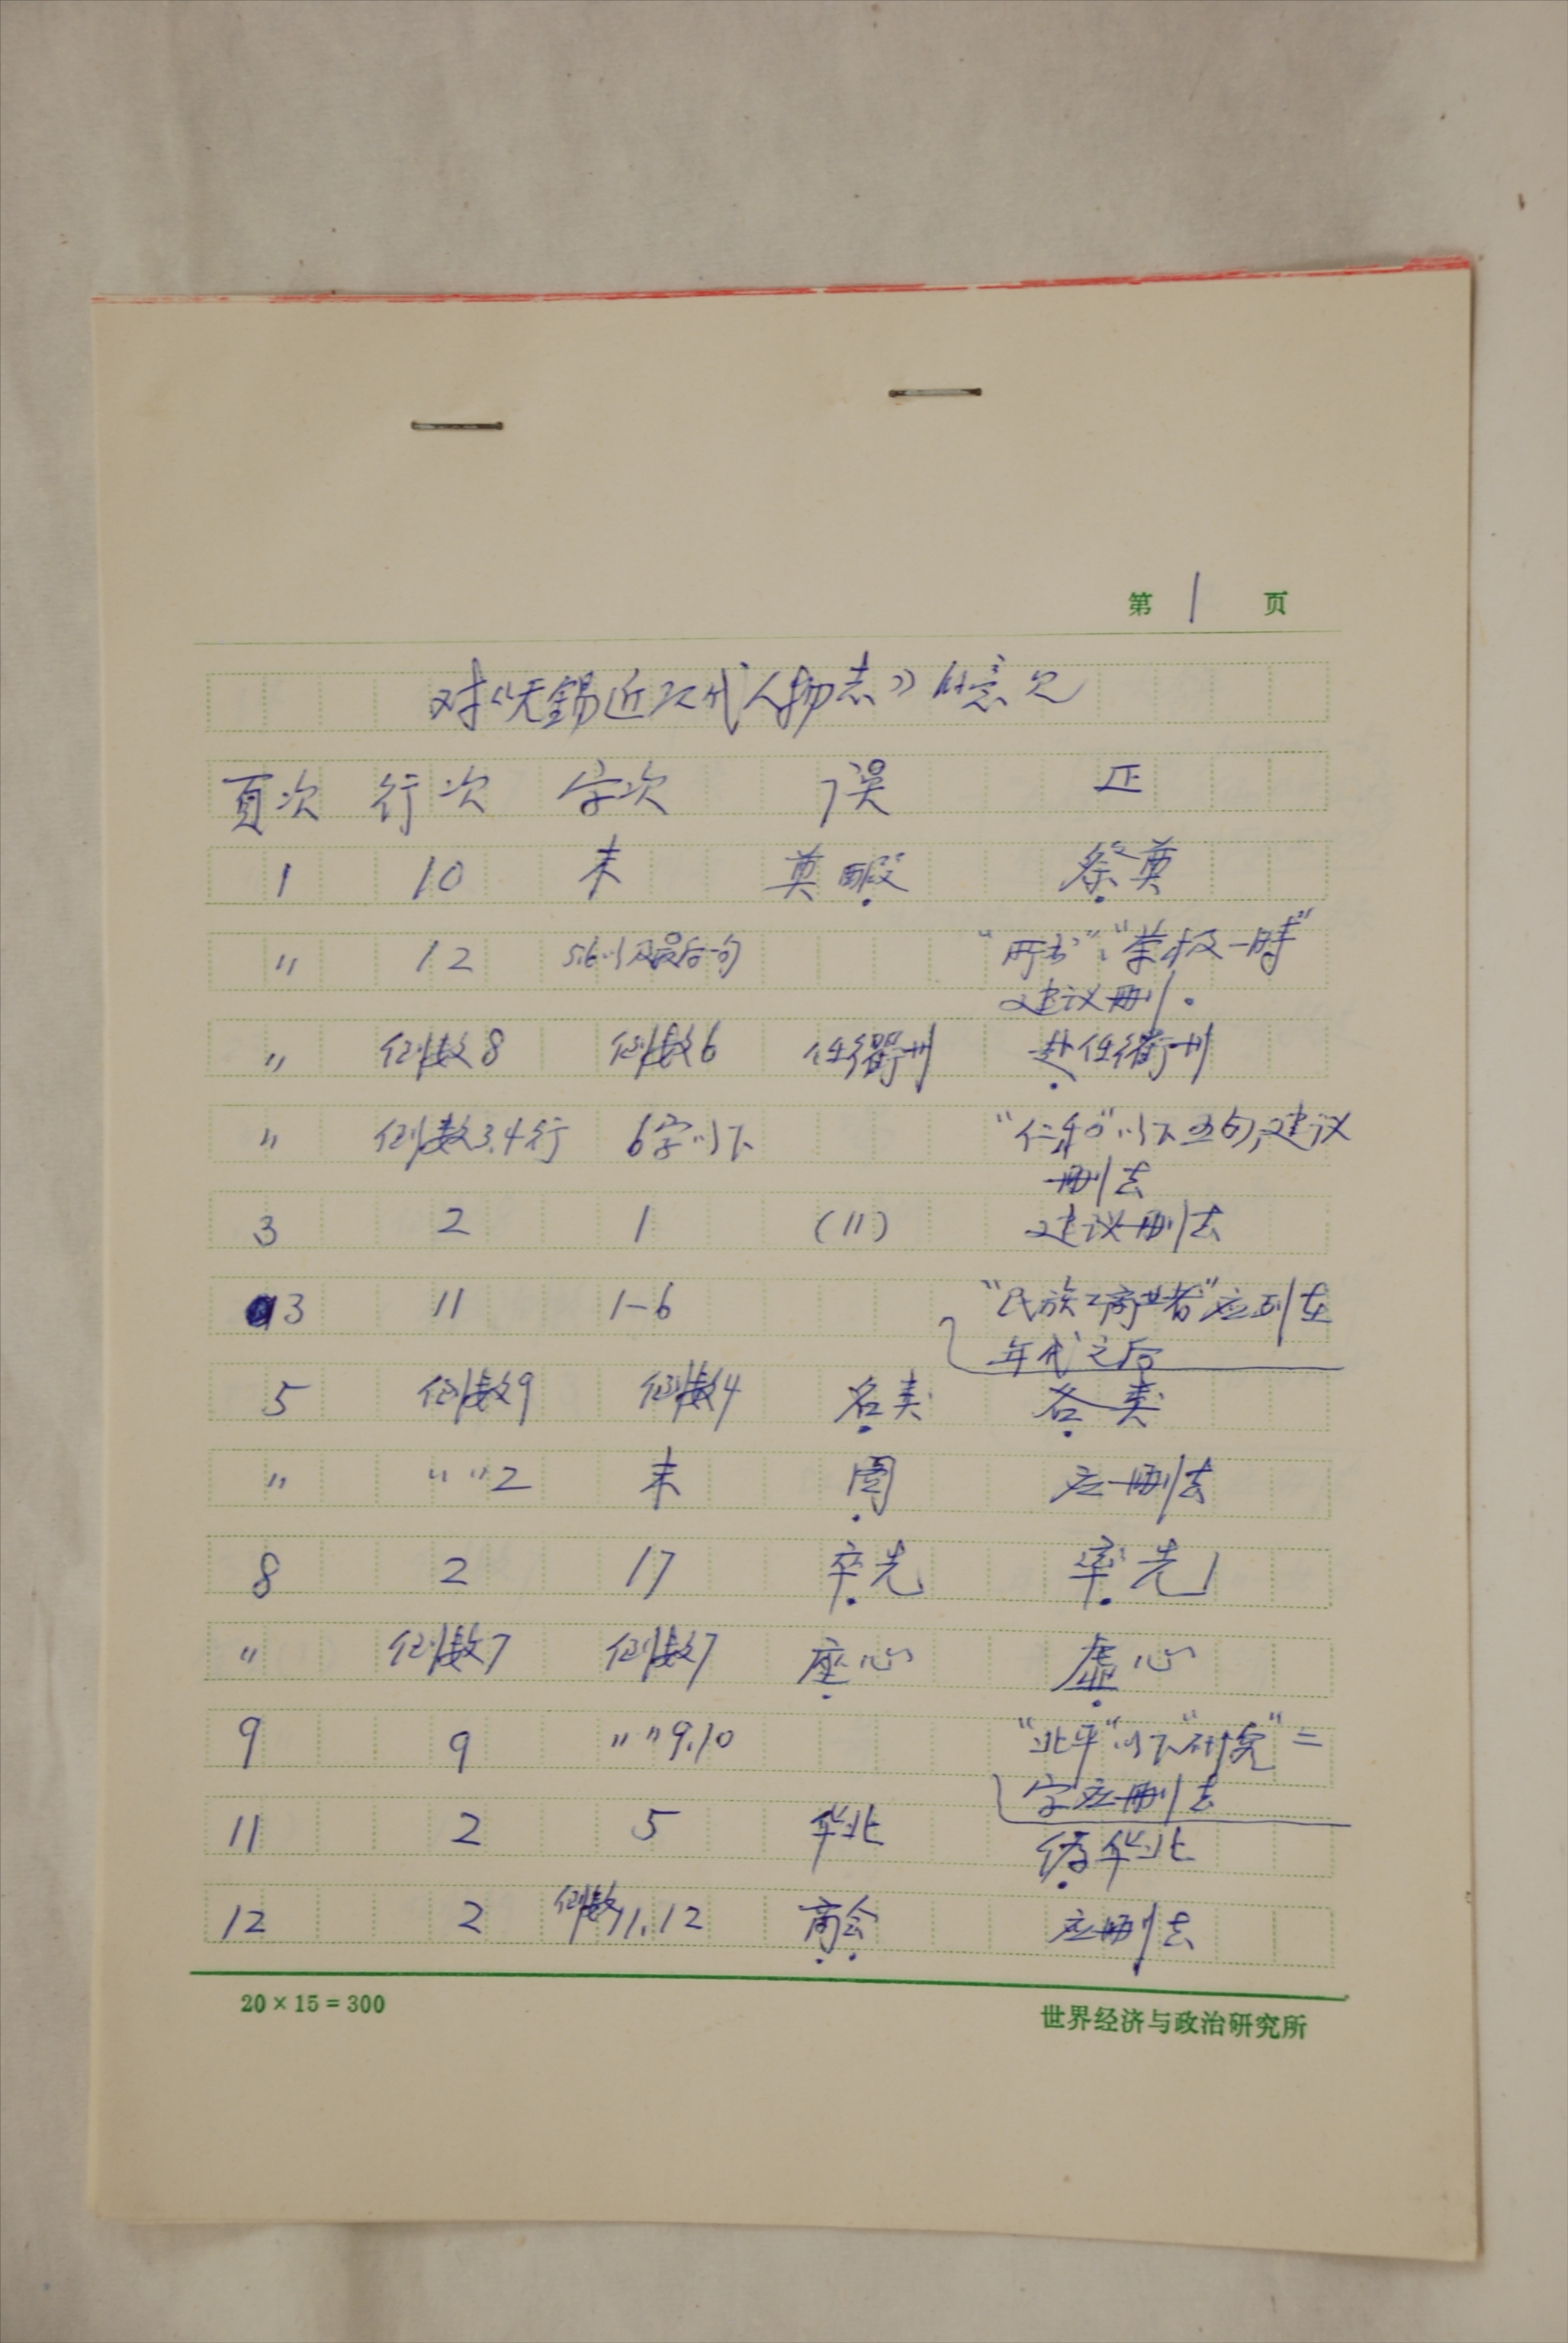 第 1 页
对《无锡近现代人物志》的意见
頁次 行次 字次 误 正
1 10 末 奠醊 祭奠
" 12 5.6.以及最后一句 "所书"、"荣极一时"
建议删。
" 倒数8 倒数6 任衢州 赴任衢州
" 倒数3.4行 6字以下 "仁和"以下五句,建议
删去
3 2 1 (11) 建议删去
3 11 1-6 "民族工商业者"应列在
年代之后
5 倒数9 倒数4 名类 各类
" " " 2 末 图 应删去
8 2 17 卒先 率先
" 倒数7 倒数7 座心 虚心
9 9 " " 9.10 "北平"以下"研究"二
字应删去
11 2 5 华北 华北
12 2 倒数11.12 商会 应删去
20×15=300
世界经济与政治研究所